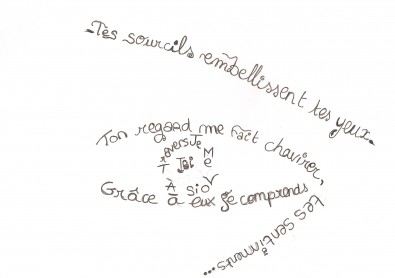 Tes sourcils embellissent tes yeux.
Ton regard me fait chavirer,
À Travers Je Me Vois
Toi
Grâce à eux je comprends
tes sentiments...